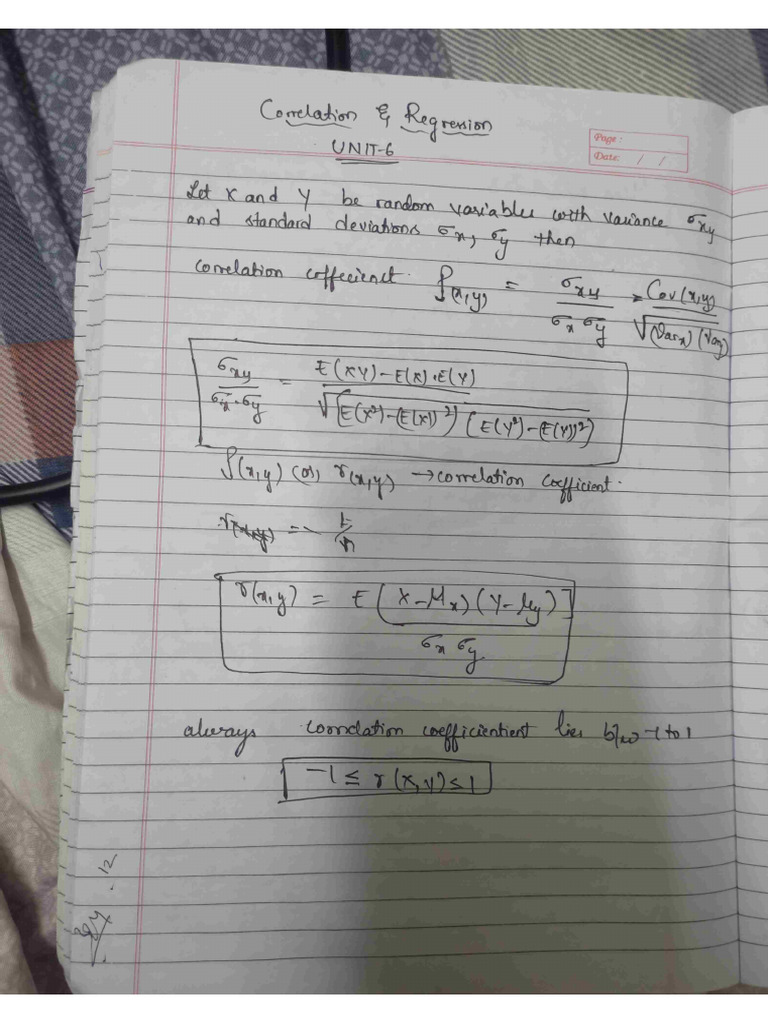 Correlation & Regression
UNIT-6
Page :
Date: / /
Let X and Y be random variables with variance σxy
and standard deviations σx, σy then
correlation coffecienct ρ(x,y) = σxy / σx σy = Cov(x,y) / √(Varx)(Vary)
σxy / σx.σy = E(XY)-E(X).E(Y) / √(E(X²)-(E(X))²)(E(Y²)-(E(Y))²)
ρ(x,y) (or) r(x,y) → correlation coefficient.
r(x,y) = E(X-μx)(Y-μy)] / σx σy
always correlation coefficientient lies b/w -1 to 1
-1 ≤ r(x,y) ≤ 1
12